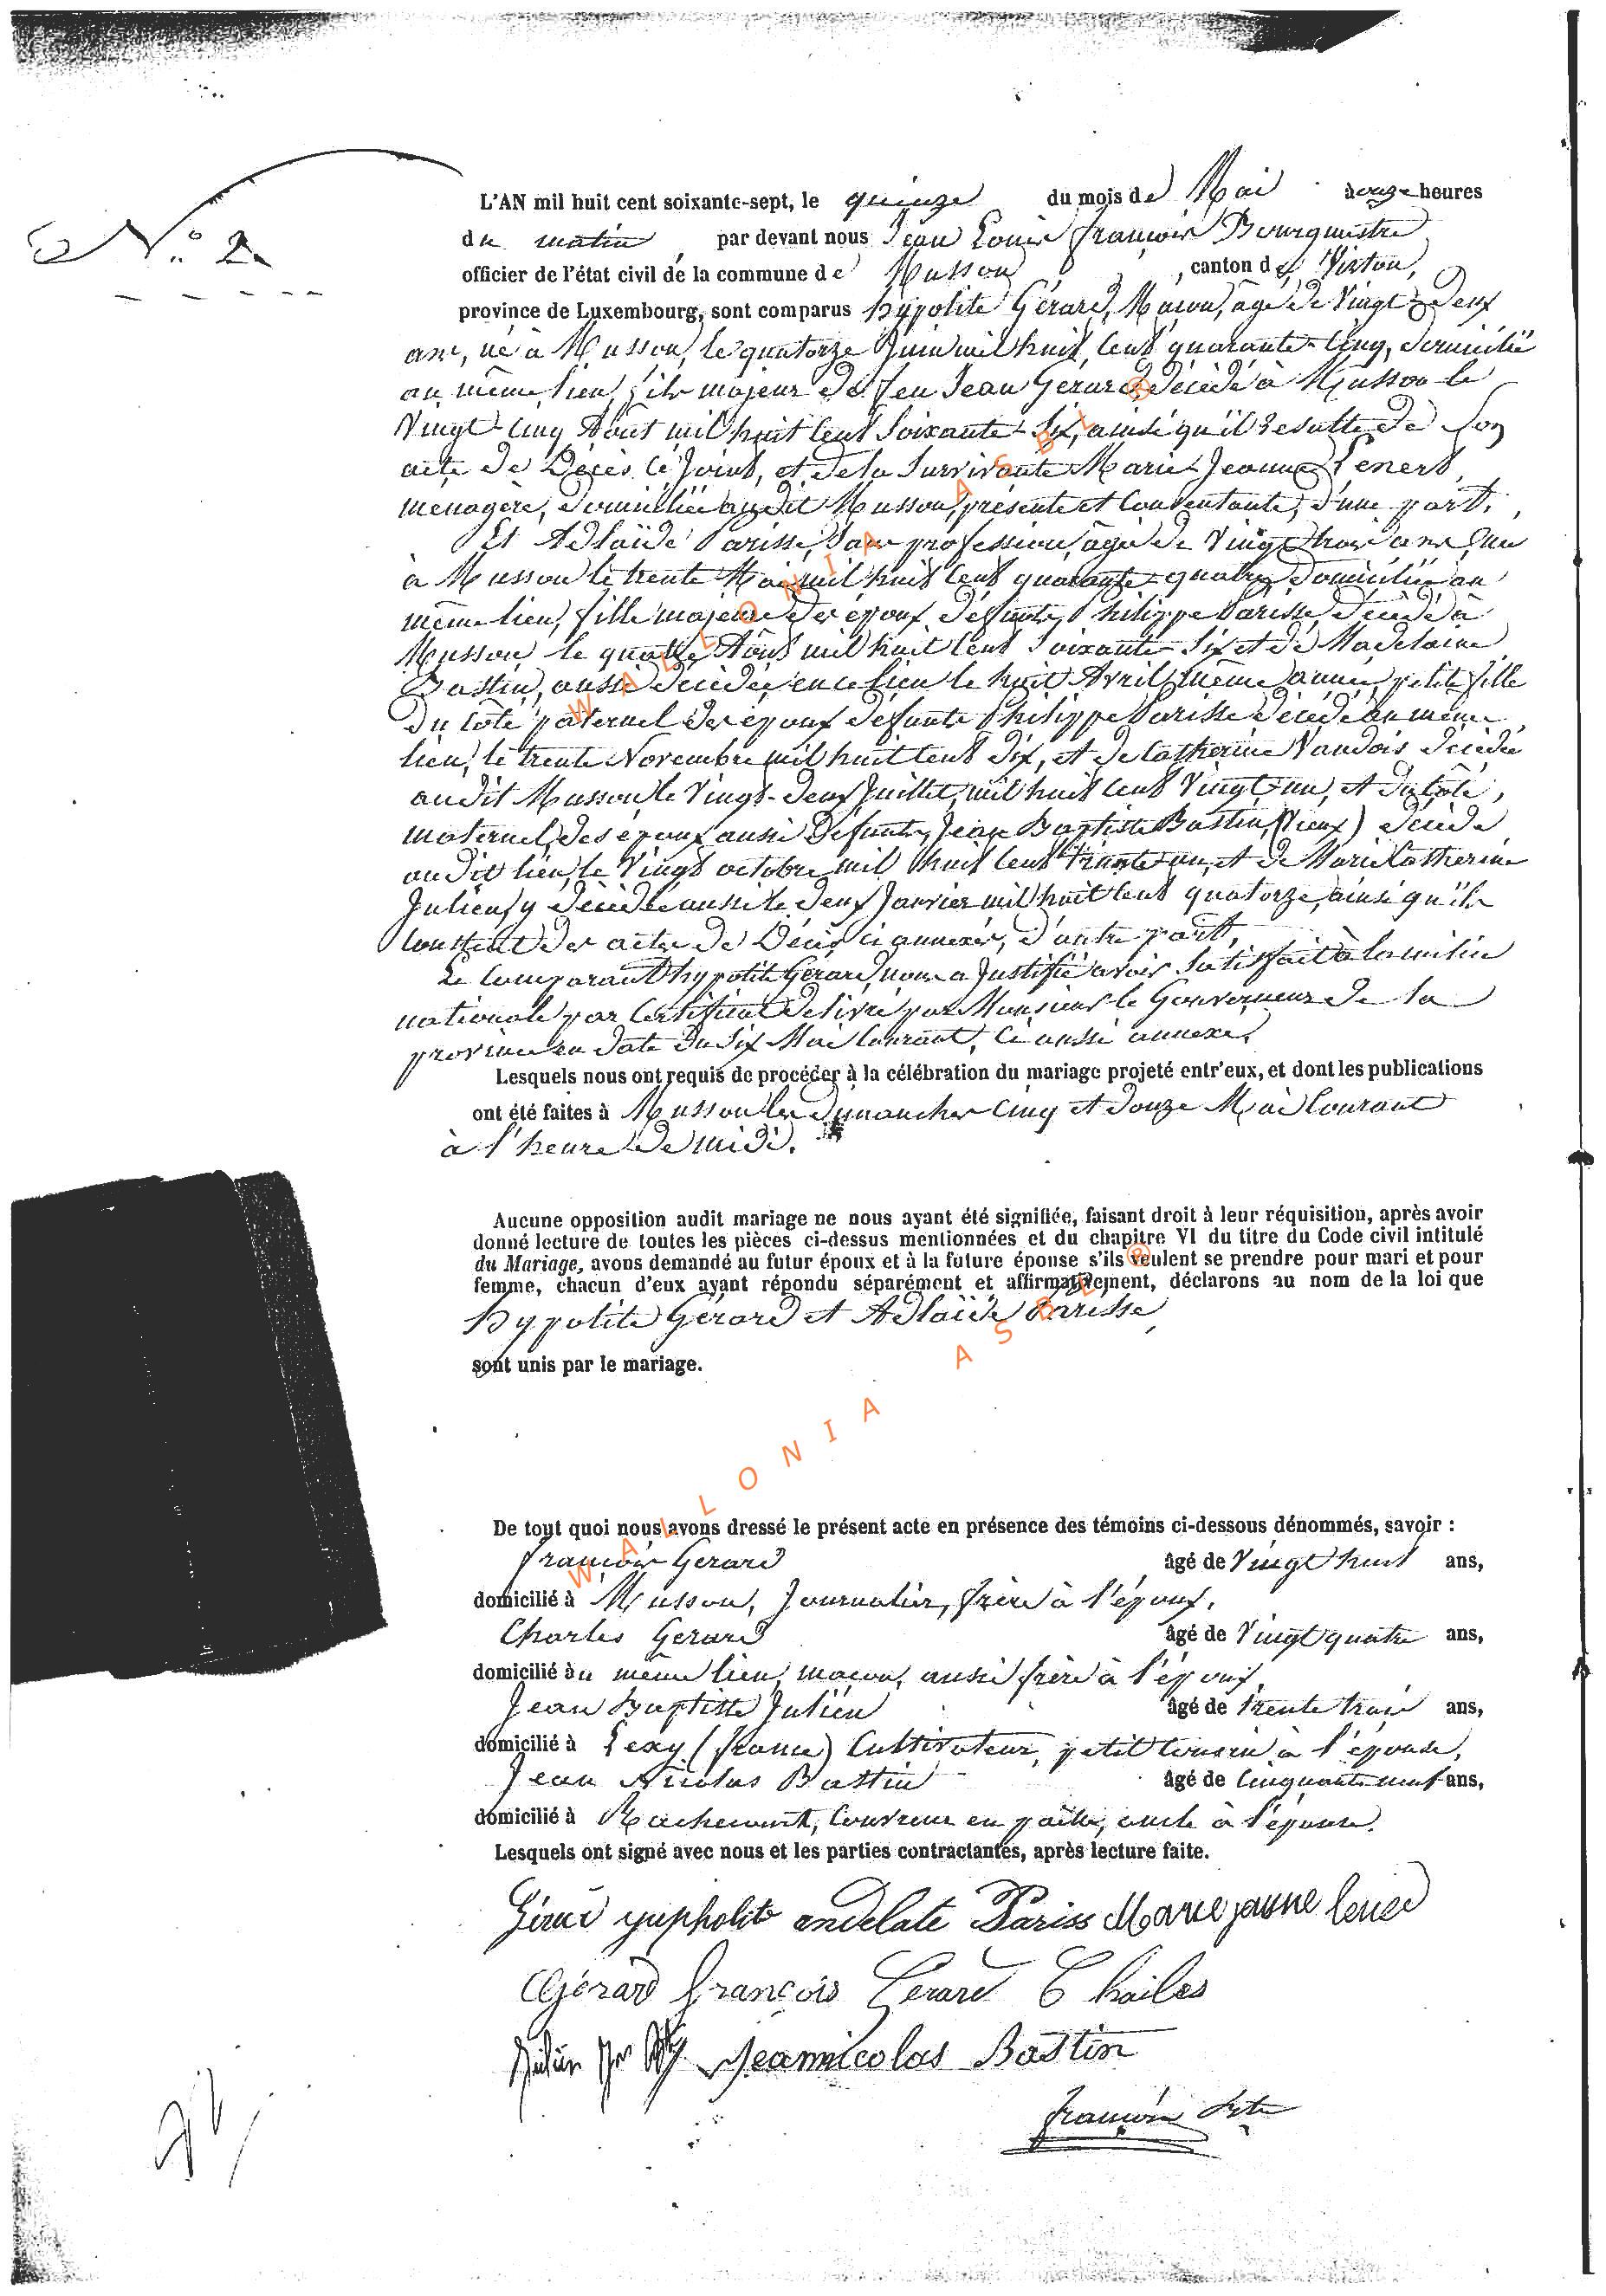 N.° 2.
L'AN mil huit cent soixante-sept, le quinze du mois de Mai à onze heures
du matin par devant nous Jean Louis françois Bourgmestre
officier de l'état civil de la commune de Musson, canton de Virton,
province de Luxembourg, sont comparus hyppolite Gérard, Macon, âgé de Vingt-deux
ans, né à Musson, le quatorze Juin mil huit Cent quarante-Cinq, domicilié
au même lieu, fils majeur de feu Jean Gérard, décédé à Musson le
Vingt-Cinq Aôut mil huit Cent Soixante-Six, ainsi qu'il résulte de Son
acte de Décès Ci Joint, et de la Survivante Marie-Jeanne Lenerd,
menagère, domiciliée audit Musson, présente et Consentante, d'une part.
Et Adlaïde Parisse, Sans profession, âgée de Vingt trois ans, née
à Musson le trente Mai mil huit Cent quarante-quatre, domiciliée au
même lieu, fille majeure des époux défunts, Philippe Parisse, décédé à
Musson, le quatre Aôut mil huit Cent Soixante-Six et de Madelaine
Bastin, aussi décédée en ce lieu le huit Avril même année, petite fille
du Côté paternel des époux défunts Philippe Parisse décédé au même
lieu, le trente Novembre mil huit Cent dix, et de Catherine Vaudois décédée
audit Musson le Vingt-deux Juillet, mil huit Cent Vingt-un, et du Côté,
maternel, des époux aussi défunts, Jean Baptiste Bastin, (Vieux) décédé
audit lieu, le Vingt octobre mil huit Cent trente-un, et de Marie Catherine
Julien, y décédée aussi le deux Janvier mil huit Cent quatorze, ainsi qu'ils
Constent des actes de Décès ci annexés, d'autre part,
Le Comparant hyppolite Gérard, nous a Justifié avoir Satisfait à la milice
nationale par Certificat délivré par Monsieur le Gouverneur de la
province en date du Six Mai Courant, Ci aussi annexé.
Lesquels nous ont requis de procéder à la célébration du mariage projeté entr'eux, et dont les publications
ont été faites à Musson les dimanches Cinq et douze Mai Courant
à l'heure de midi.
Aucune opposition audit mariage ne nous ayant été signifiée, faisant droit à leur réquisition, après avoir
donné lecture de toutes les pièces ci-dessus mentionnées et du chapitre VI du titre du Code civil intitulé
du Mariage, avons demandé au futur époux et à la future épouse s'ils veulent se prendre pour mari et pour
femme, chacun d'eux ayant répondu séparément et affirmativement, déclarons au nom de la loi que
hyppolite Gérard et Adlaïde Parisse,
sont unis par le mariage.
WALLONIA ASBL ®
WALLONIA ASBL ®
De tout quoi nous avons dressé le présent acte en présence des témoins ci-dessous dénommés, savoir :
françois Gérard âgé de Vingt huit ans,
domicilié à Musson, Journalier, frère à l'époux,
Charles Gerard âgé de Vingt quatre ans,
domicilié au même lieu, macon, aussi frère à l'époux,
Jean Baptiste Julien âgé de trente trois ans,
domicilié à Lexy (france) Cultivateur, petit Cousin à l'épouse,
Jean Nicolas Bastin âgé de Cinquante neuf ans,
domicilié à Rachecourt, Couvreur en paille, oncle à l'épouse.
Lesquels ont signé avec nous et les parties contractantes, après lecture faite.
Gérard yuppholite andelate Pariss Marie janne lener
Gérard François Gerard Charles
Julien Jn Bte Jeannicolas Bastin
françois